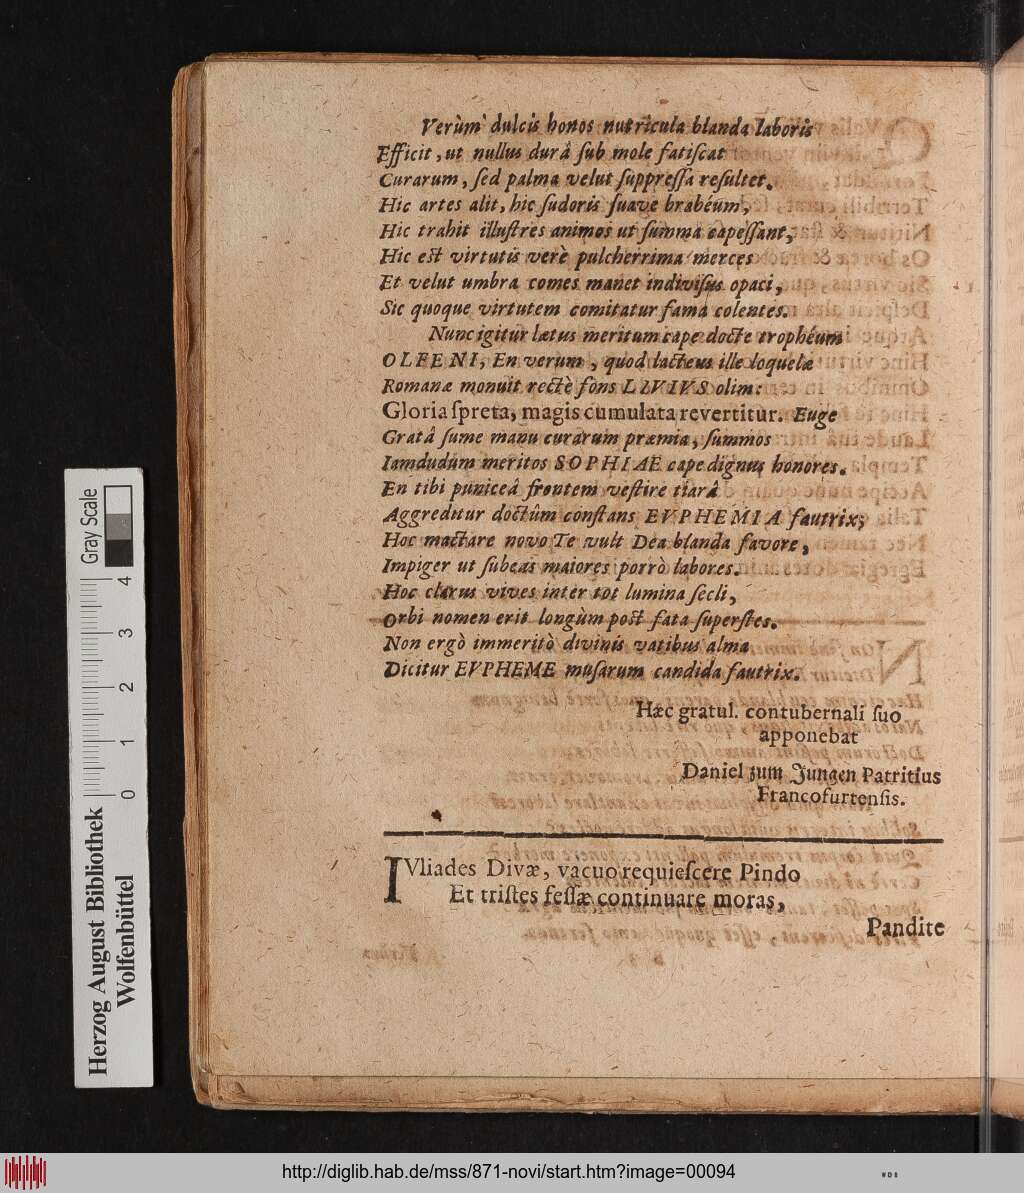 Verùm dulcis honos nutricula blanda laboris
Efficit, ut nullus durâ ſub mole fatiſcat
Curarum, ſed palma velut ſuppreſſa reſultet.
Hic artes alit, hic ſudoris ſuave brabéum,
Hic trahit illuſtres animos ut ſumma capeſſant,
Hic est virtutis verè pulcherrima merces
Et velut umbra comes manet indiviſus opaci,
Sic quoque virtutem comitatur fama colentes.
Nunc igitur lætus meritum cape docte trophéum
OLFENI, En verum, quod lacteus ille loquelæ
Romanæ monuit rectè fons LIVIVS olim:
Gloria ſpreta, magis cumulata revertitur. Euge
Gratâ ſume manu curarum præmia, ſummos
Iamdudum meritos SOPHIAE cape dignus honores.
En tibi puniceâ frontem veſtire tiarâ
Aggreditur doctûm conſtans EVPHEMIA fautrix;
Hoc mactare novo Te vult Dea blanda favore,
Impiger ut ſubeas maiores porrò labores.
Hoc clarus vives inter tot lumina ſecli,
Orbi nomen erit longùm post fata ſuperſtes.
Non ergò immeritò divinis vatibus alma
Dicitur EVPHEME muſarum candida fautrix.
Hæc gratul. contubernali ſuo
apponebat
Daniel zum Jungen Patritius
Francofurtenſis.
IVliades Divæ, vacuo requieſcere Pindo
Et triſtes feſſæ continuare moras,
Pandite
Gray Scale
0 1 2 3 4
Herzog August Bibliothek
Wolfenbüttel
http://diglib.hab.de/mss/871-novi/start.htm?image=00094